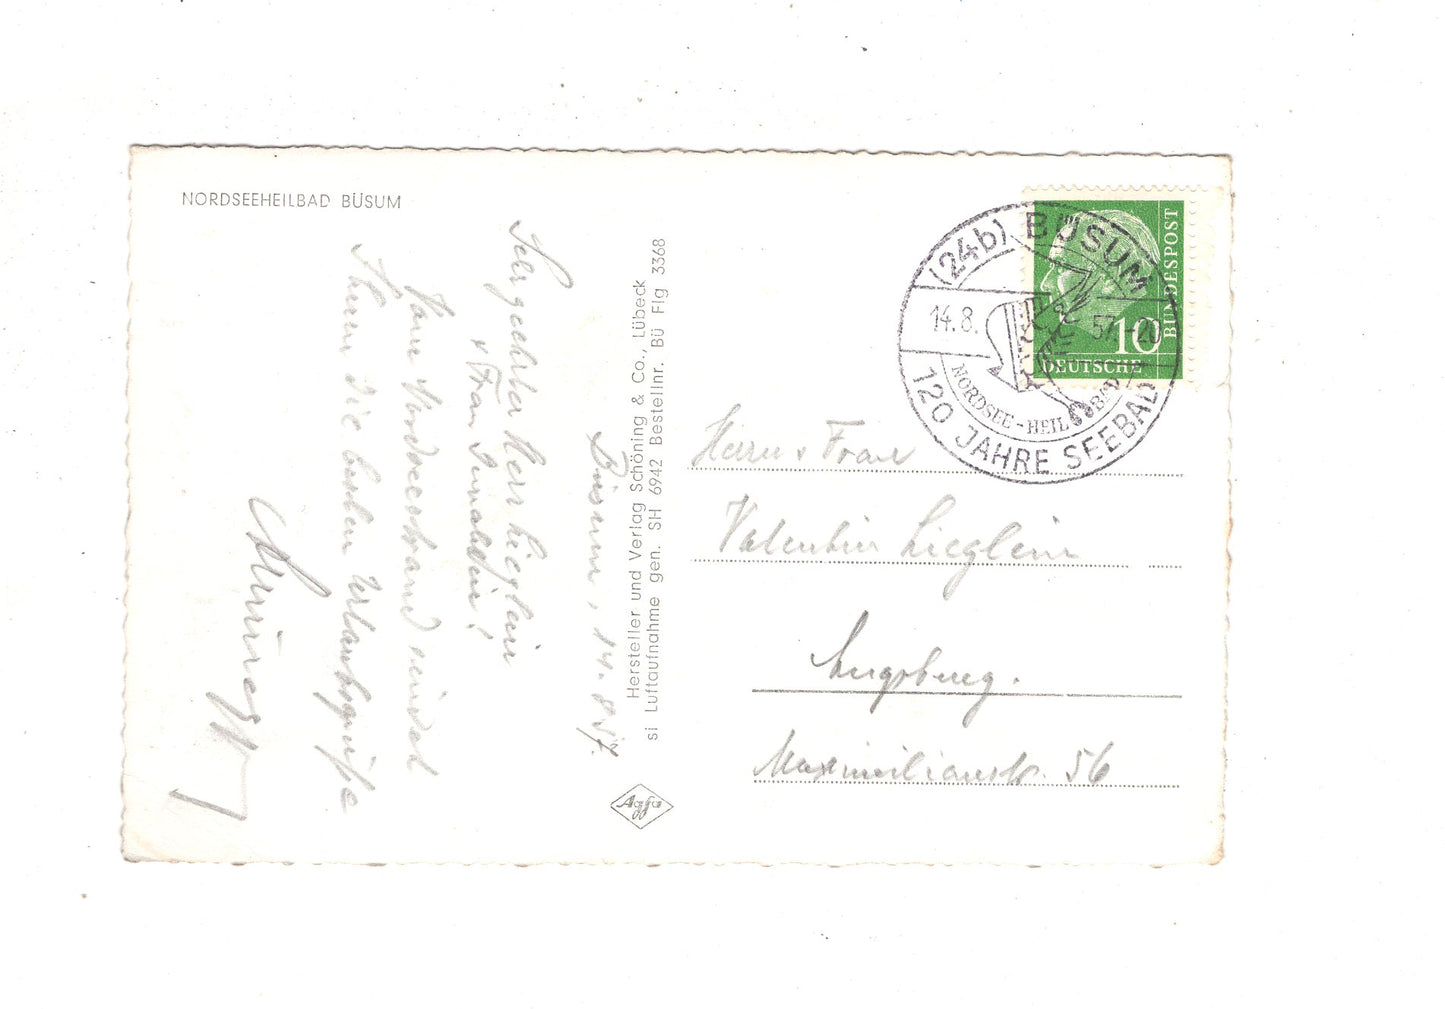 NORDSEEHEILBAD BÜSUM
Büsum, 14.8.57.
Sehr geehrter Herr Lieglein
+ Frau Gemahlin!
Vom Nordseestrand sendet
Ihnen die besten Urlaubsgrüße
Hersteller und Verlag Schöning & Co., Lübeck
si Luftaufnahme gen. SH 6942 Bestellnr. Bü Flg 3368
Agfa
(24b) BÜSUM
14.8.57.-20
NORDSEE-HEILBAD
120 JAHRE SEEBAD
10
DEUTSCHE
BUNDESPOST
Herrn + Frau
Valentin Lieglein
Augsburg.
Maximilianstr. 56